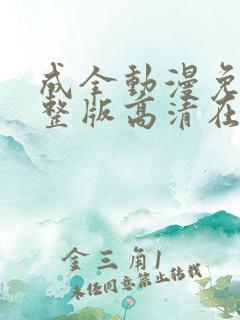 成全動漫免
整版高清在
金三角1
未经同意禁止转载